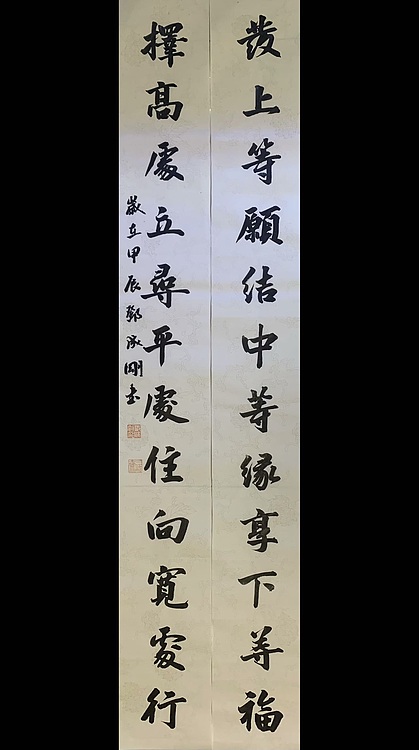 發上等願結中等緣享下等福
擇高處立尋平處住向寬處行
歲在甲辰鄧承剛書